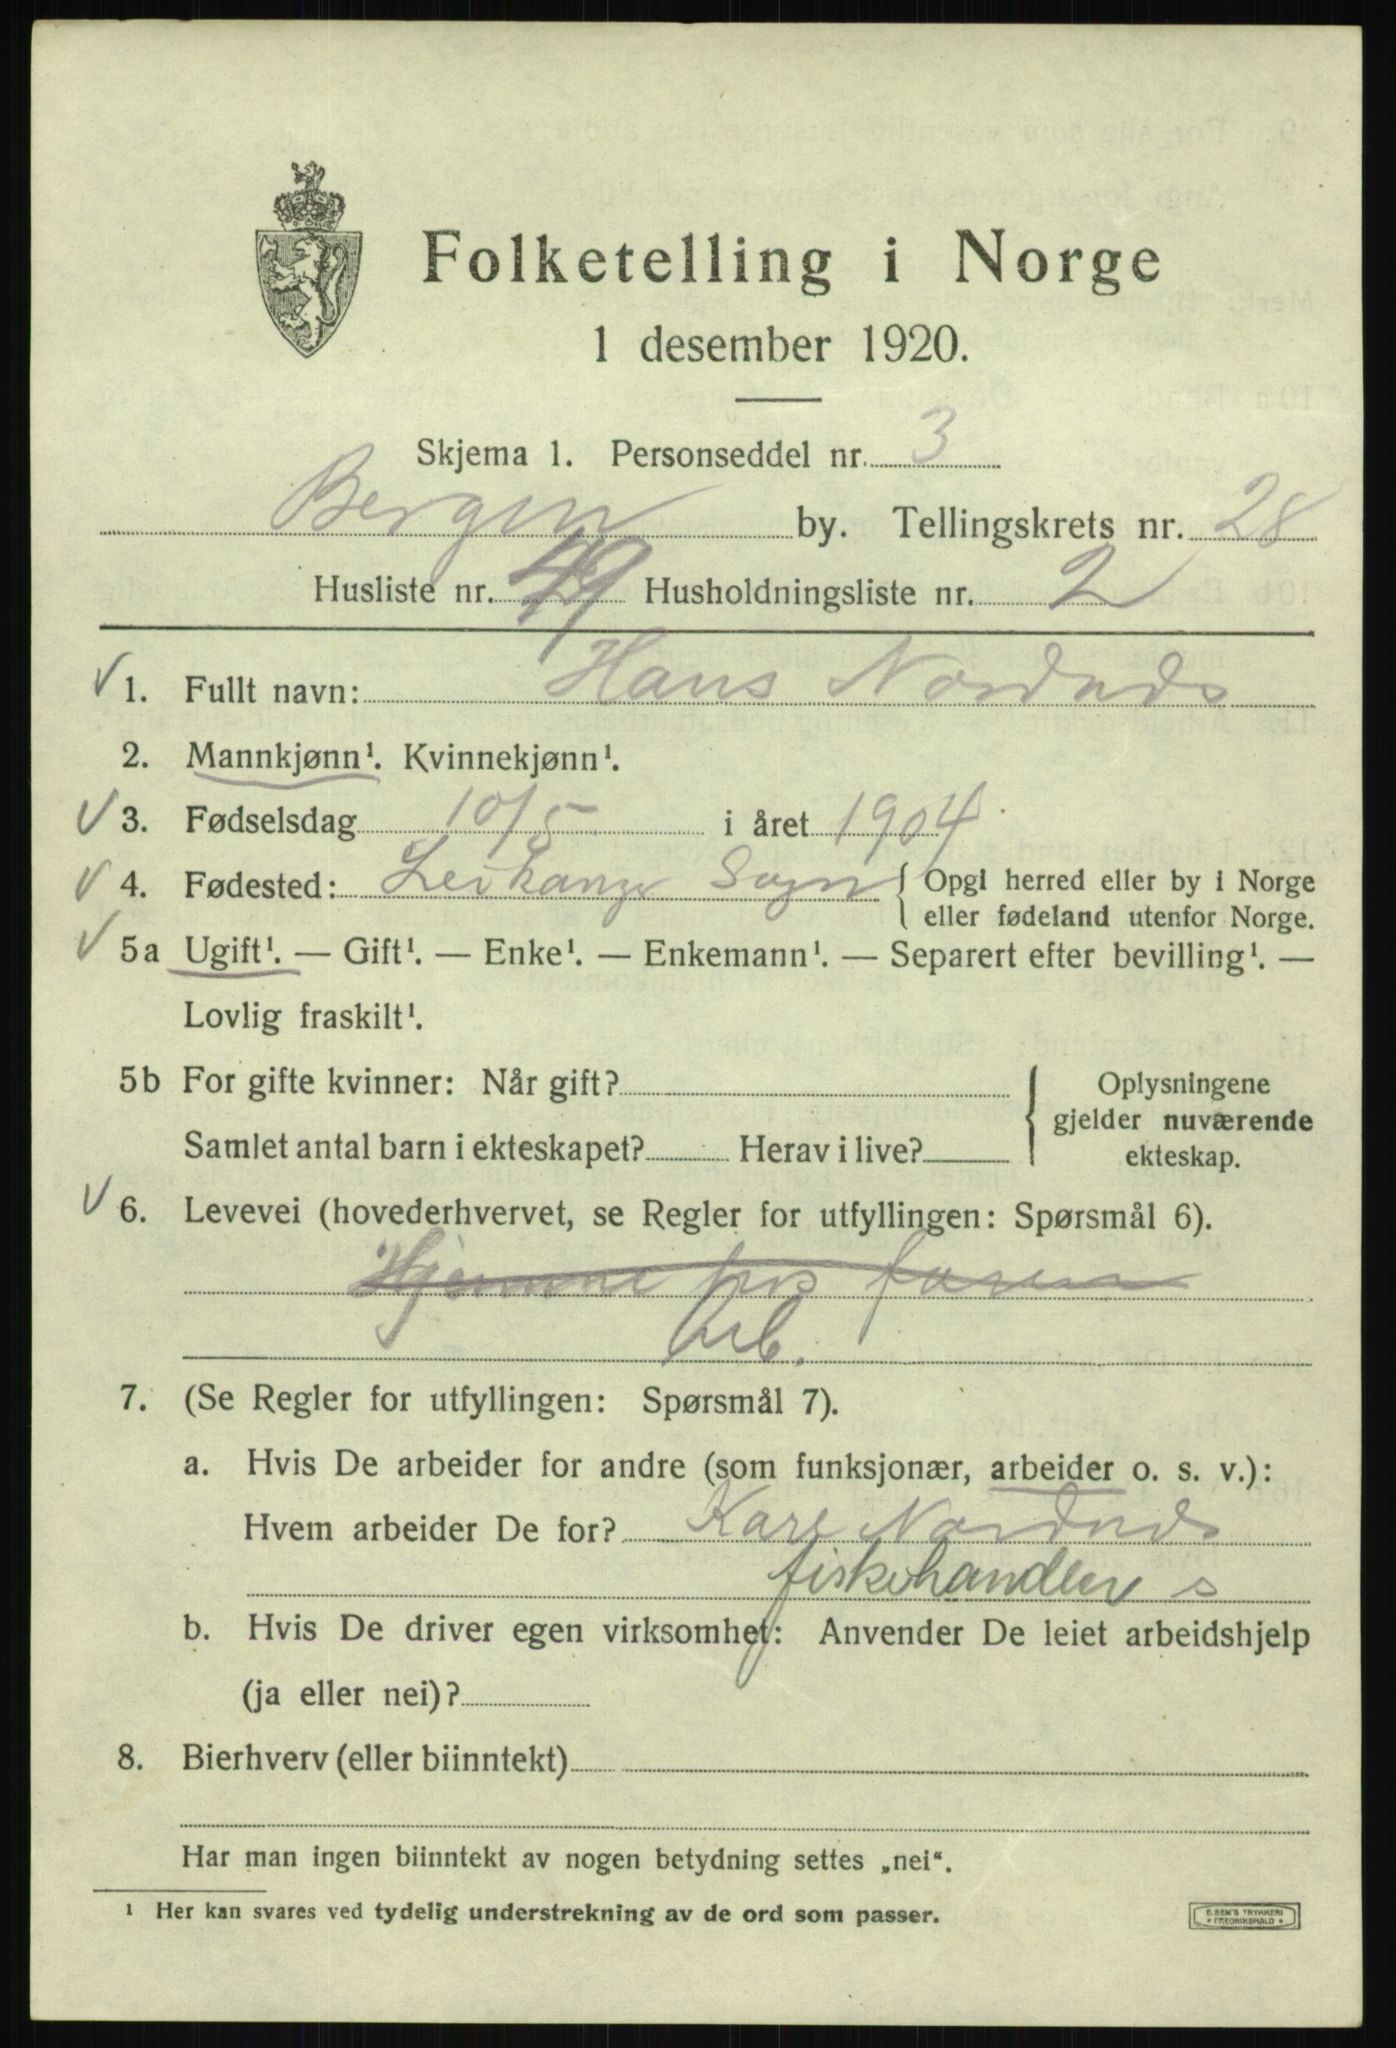 Folketelling i Norge
1 desember 1920.
Skjema 1. Personseddel nr. 3
Bergen by. Tellingskrets nr. 28
Husliste nr. 49 Husholdningsliste nr. 2
1. Fullt navn: Hans
2. Mannkjønn¹. Kvinnekjønn¹.
3. Fødselsdag 10/5 i året 1904
4. Fødested: Leikanger Sogn { Opgi herred eller by i Norge
eller fødeland utenfor Norge.
5a Ugift¹. — Gift¹. — Enke¹. — Enkemann¹. — Separert efter bevilling¹. —
Lovlig fraskilt¹.
5b For gifte kvinner: Når gift? { Oplysningene
gjelder nuværende
Samlet antal barn i ekteskapet? Herav i live?
ekteskap.
6. Levevei (hovederhvervet, se Regler for utfyllingen: Spørsmål 6).
Hjemme hos faren
Arb.
7. (Se Regler for utfyllingen: Spørsmål 7).
a. Hvis De arbeider for andre (som funksjonær, arbeider o. s. v.):
Hvem arbeider De for?
fiskehandler s
b. Hvis De driver egen virksomhet: Anvender De leiet arbeidshjelp
(ja eller nei)?
8. Bierhverv (eller biinntekt)
Har man ingen biinntekt av nogen betydning settes „nei“.
¹ Her kan svares ved tydelig understrekning av de ord som passer.
E. SEM'S TRYKKERI
FREDRIKSHALD